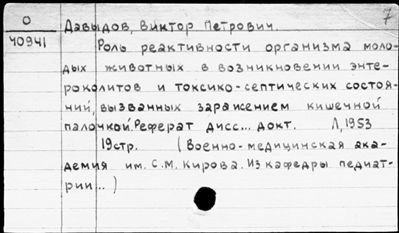 О
40941
7
Давыдов, Виктор Петрович.
Роль реактивности организма моло-
дых животных в возникновении энте-
роколитов и токсико-септических состоя-
ний, вызванных заражением кишечной
палочкой. Реферат дисс... докт. Л, 1953
19стр. (Военно-медицинская ака-
демия им. С.М. Кирова. Из кафедры педиат-
рии...)